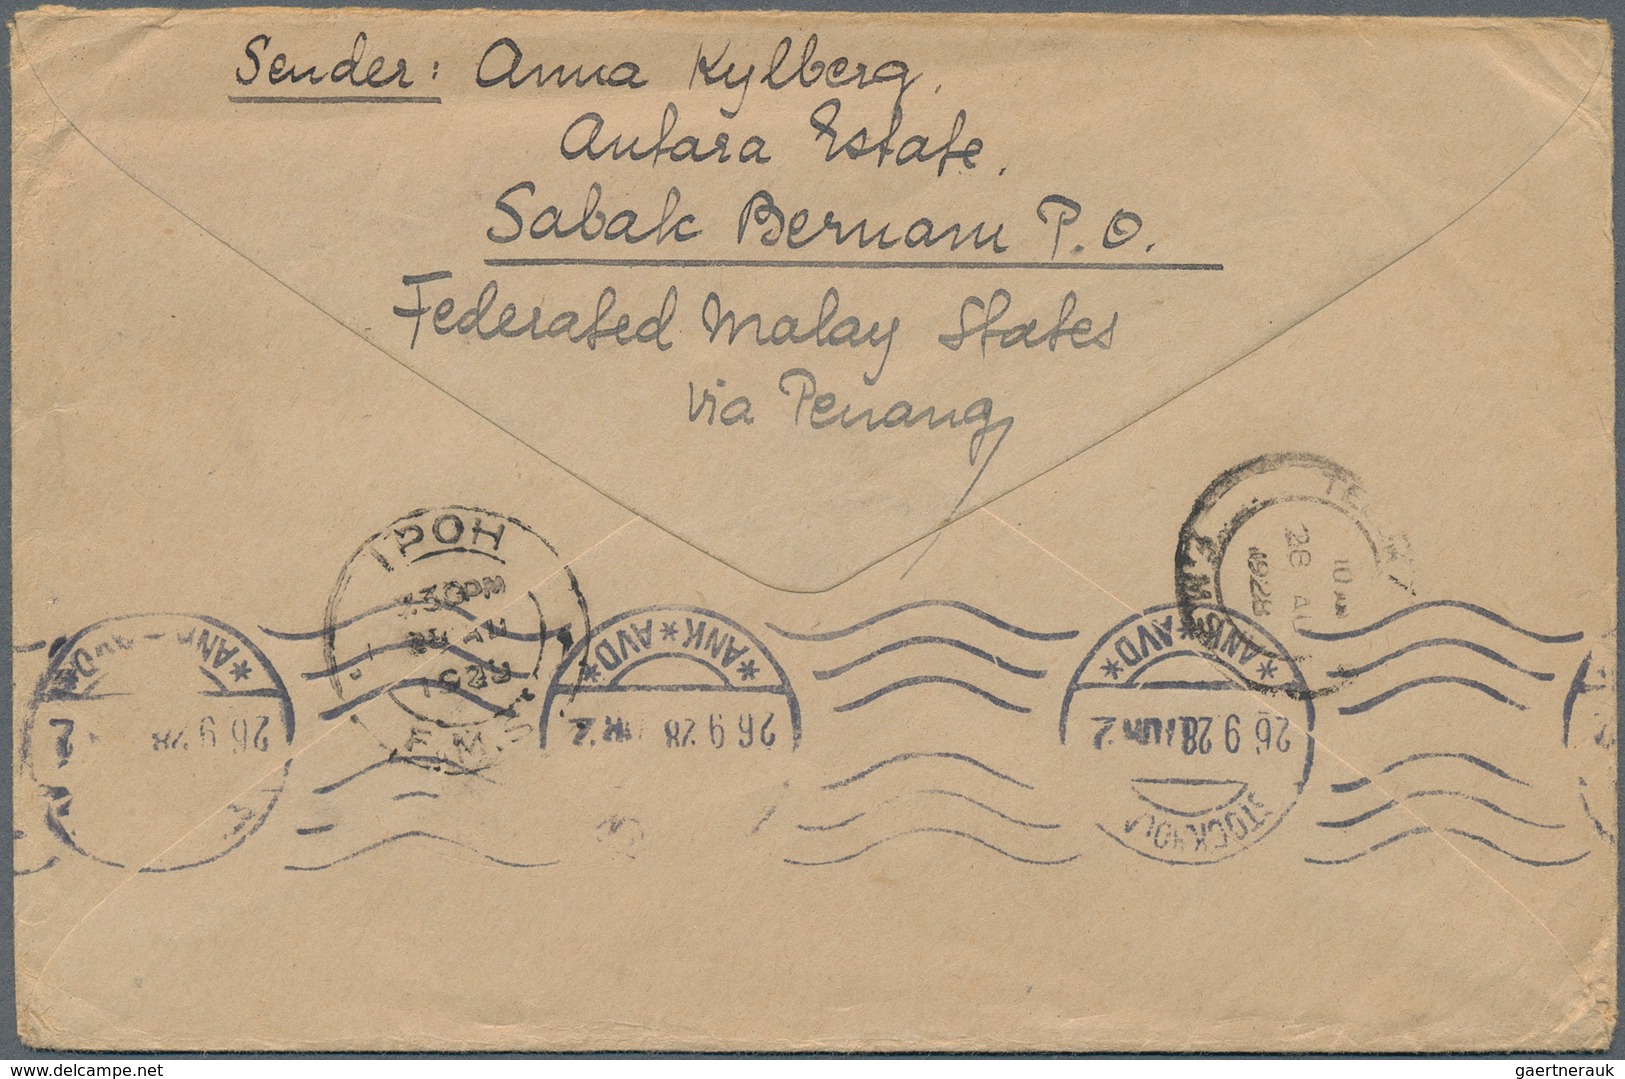 Sender: Anna Kylberg.
Antara Estate.
Sabak Bernam P.O.
Federated Malay States
via Penang
IPOH
30PM
F.M.S.
10
28 AU
1928
F.M.S.
*ANK
26 9 28
2
*ANK*AVD*
26 9 28
2
*ANK*AVD*
26 9 28
2
STOCKHOLM
delcampe.net
gaertnerauk